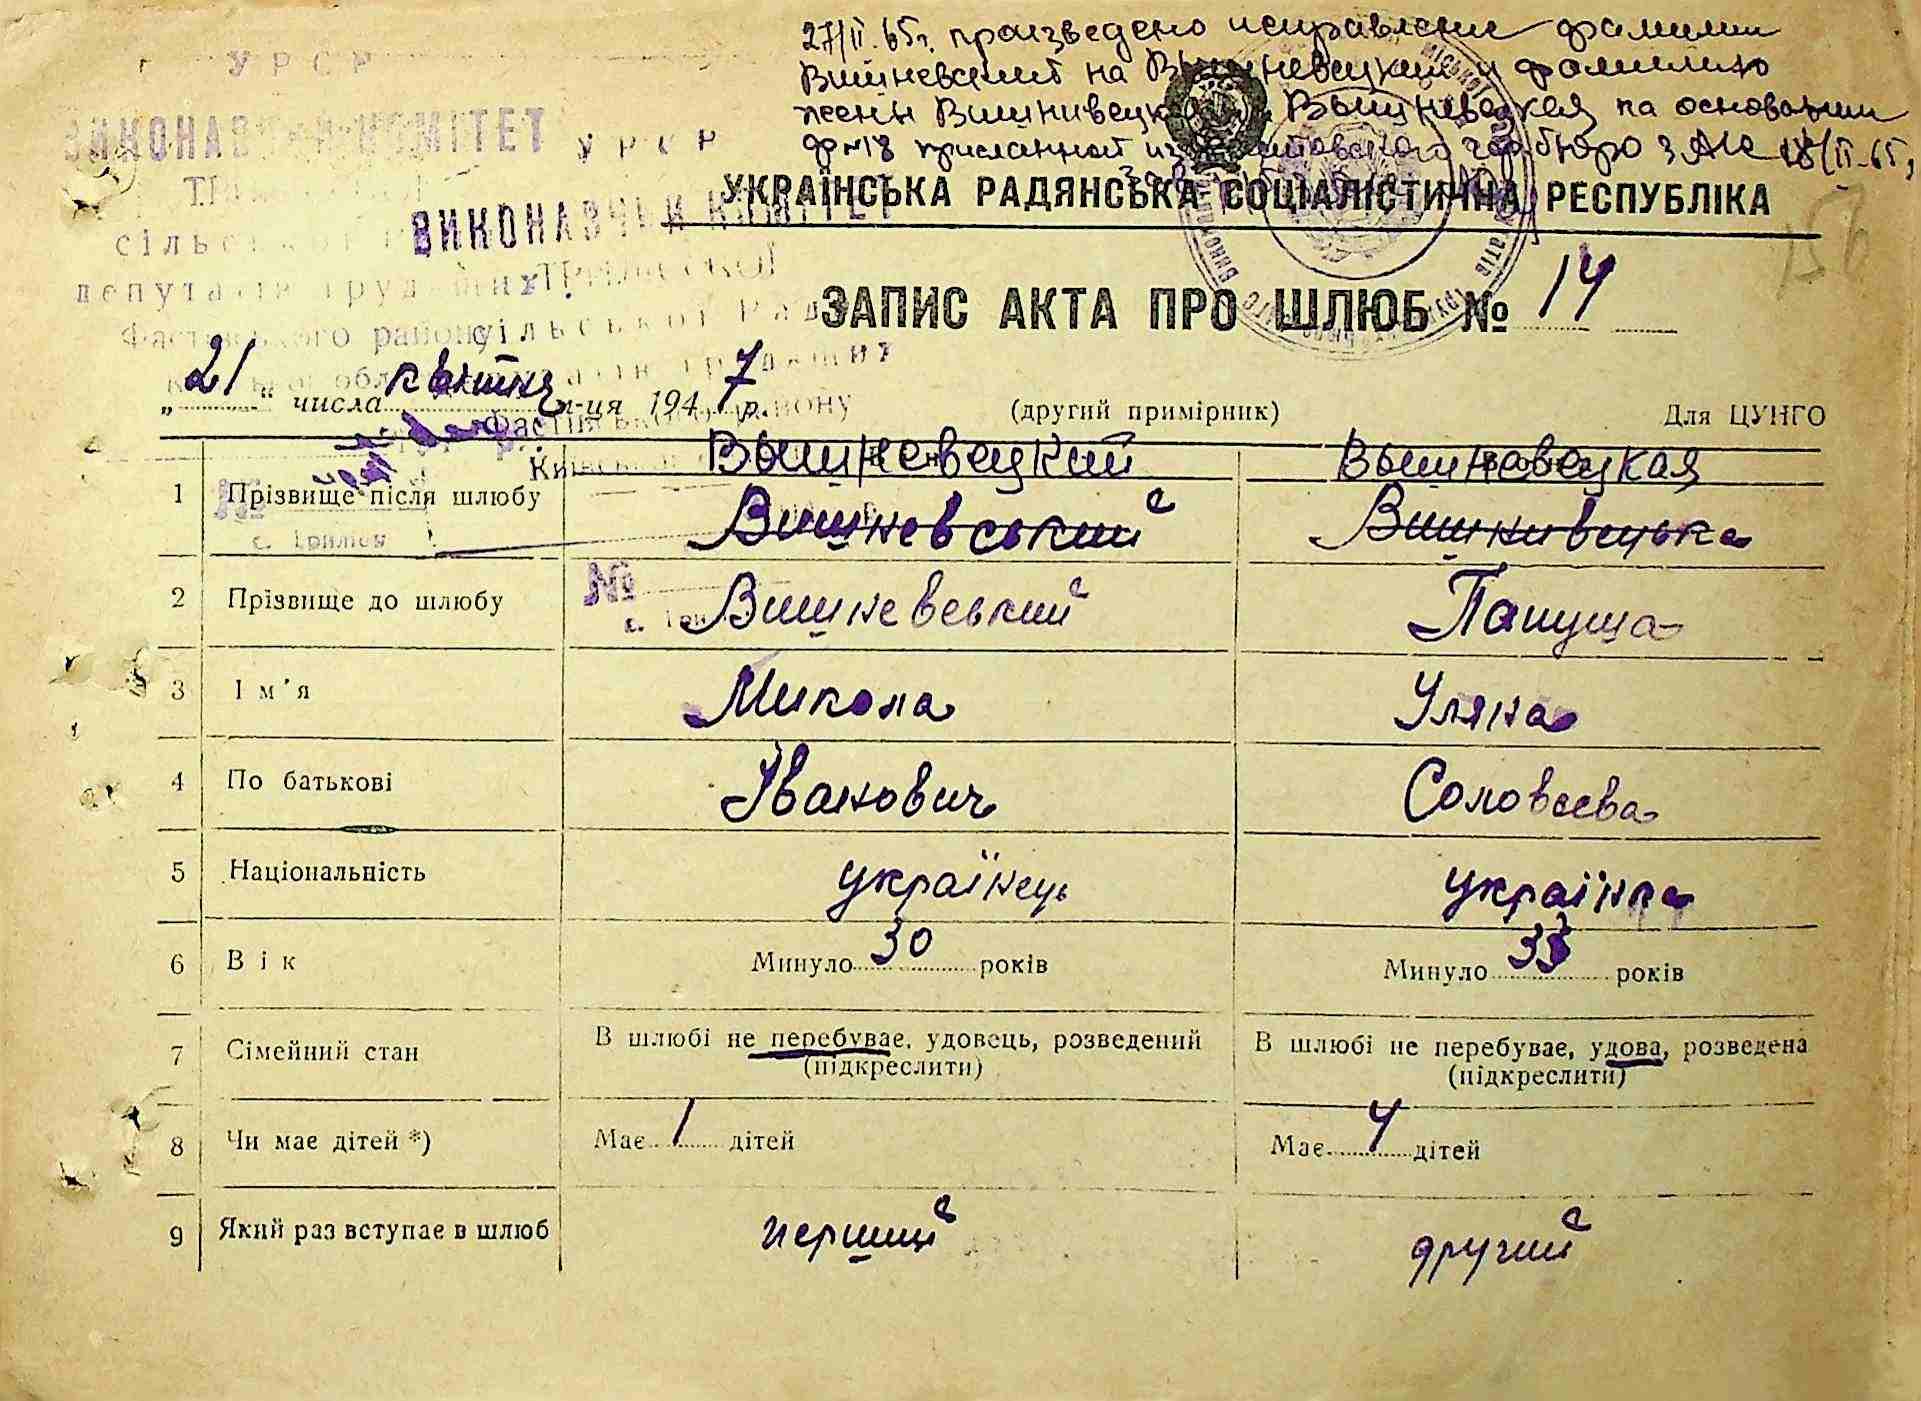 27/II.65г. произведено исправление фамилии
Вишневский на Вышневецкий и фамилию
жены на Вышневецкая на основании
ф №18 присланной из гор бюро ЗАГС 18/II-65г,
УРСР
ВИКОНАВЧИЙ КОМІТЕТ
УРСР
сільської
ВИКОНАВЧИЙ КОМІТЕТ
депутатів трудящих
Фастівського району
сільської Ради
УКРАЇНСЬКА РАДЯНСЬКА СОЦІАЛІСТИЧНА РЕСПУБЛІКА
ЗАПИС АКТА ПРО ШЛЮБ № 14
„21“ числа квітня м-ця 1947 р.
(другий примірник)
Для ЦУНГО
Вышневецкий Вышневецкая
1 Прізвище після шлюбу Вишневський Вишнивецька
№
с. Триліси
2 Прізвище до шлюбу № Вишневський Папуша
3 Ім'я Микола Уляна
4 По батькові Іванович Соловєєва
5 Національність українець українка
6 Вік Минуло 30 років Минуло 33 років
7 Сімейний стан В шлюбі не перебуває, удовець, розведений В шлюбі не перебуває, удова, розведена
(підкреслити) (підкреслити)
8 Чи має дітей *) Має 1 дітей Має 4 дітей
9 Який раз вступає в шлюб перший другий